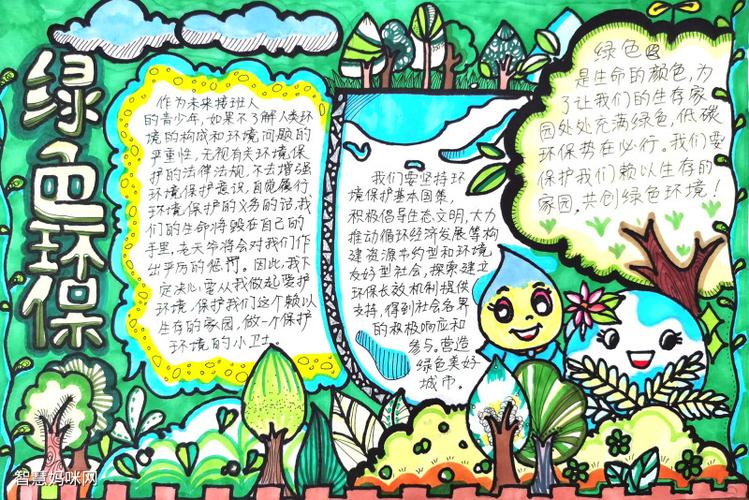 绿色环保
作为未来接班人
的青少年，如果不了解人类环
境的构成和环境问题的
严重性，无视有关环境保
护的法律法规，不去增强
环境保护意识，自觉履行
环境保护的义务的话，我
们的生命将毁在自己的
手里，老天爷将会对我们作
出严厉的惩罚。因此，我下
定决心要从我做起爱护
环境，保护我们这个赖以
生存的家园，做一个保护
环境的小卫士。
我们要坚持环
境保护基本国策，
积极倡导生态文明，大力
推动循环经济发展等构
建资源节约型和环境
友好型社会，探索建立
环保长效机制提供
支持，得到社会各界
的积极响应和
参与。营造
绿色美好
城市。
绿色
是生命的颜色，为
了让我们的生存家
园处处充满绿色，低碳
环保势在必行。我们要
保护我们赖以生存的
家园，共创绿色环境！
智慧妈咪网